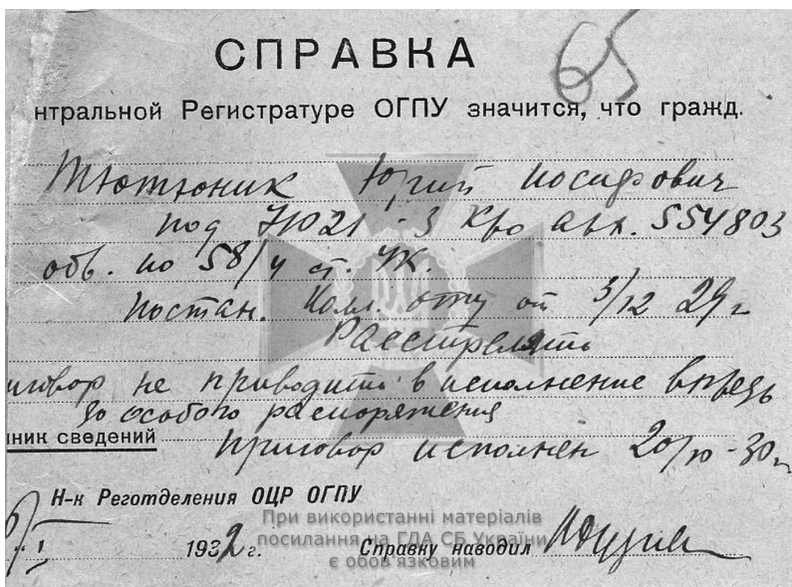 СПРАВКА
65
нтральной Регистратуре ОГПУ значится, что гражд.
Тютюник Юрий Иосифович
под 71021-3 Кро арх. 554803
обв. по 58/4 ст. УК.
Постан. Колл. ОГПУ от 3/12 29 г
Расстрелять
иговор не приводить в исполнение впредь
до особого распоряжения
ник сведений
Приговор исполнен 20/10-30 г
Н-к Реготделения ОЦР ОГПУ
I 1932 г. Справку наводил
При використанні матеріалів
посилання на ГДА СБ України
є обов'язковим